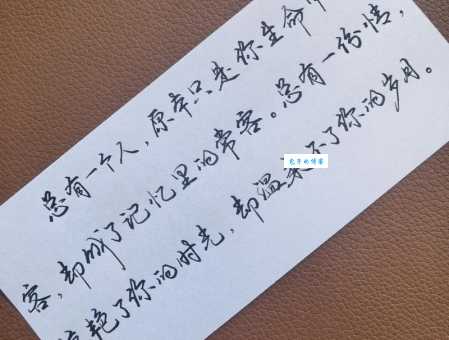 总有一个人，原本只是你生命
客，却成了记忆里的常客。总有一份情，
艳了你的时光，却温柔不了你的岁月。